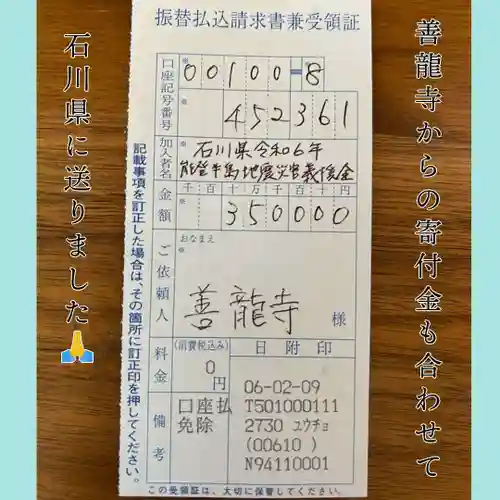 善龍寺からの寄付金も合わせて
石川県に送りました🙏
振替払込請求書兼受領証
口座記号番号
※
00100-8
※
452361
加入者名
※
石川県令和6年
能登半島地震災害義援金
金額
千百十万千百十円
※
350000
ご依頼人
おなまえ
※
善龍寺
様
料金
(消費税込み)
0
円
日附印
06-02-09
T501000111
2730 ユウチョ
(00610 )
N94110001
備考
口座払
免除
記載事項を訂正した場合は、その箇所に訂正印を押してください。
この受領証は、大切に保管してください。